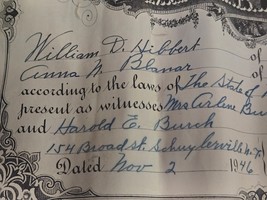 William D. Hibbert of
Anna N. Blanar of
according to the laws of The State of
present as witnesses Mrs Arlene Bu
and Harold E. Burch
154 Broad St. Schuylerville N.Y.
Dated Nov 2 1946